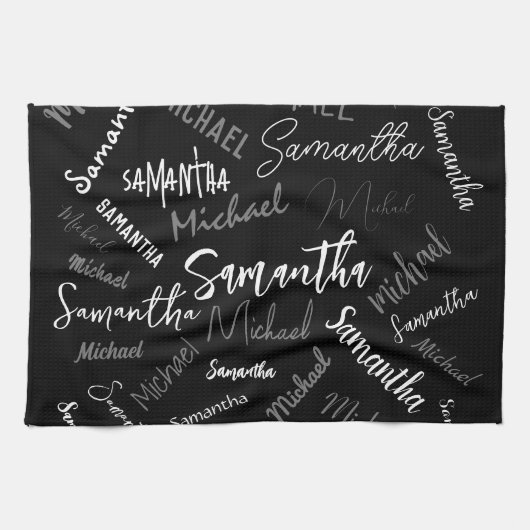 Michael
Samantha
MICHAEL
Samantha
Samantha
SAMANTHA
Michael
Michael
Michael
SAMANTHA
Michael
Samantha
Michael
Samantha
Michael
Samantha
Samantha
Michael
Michael
Michael
Samantha
Michael
Samantha
Samantha
Michael